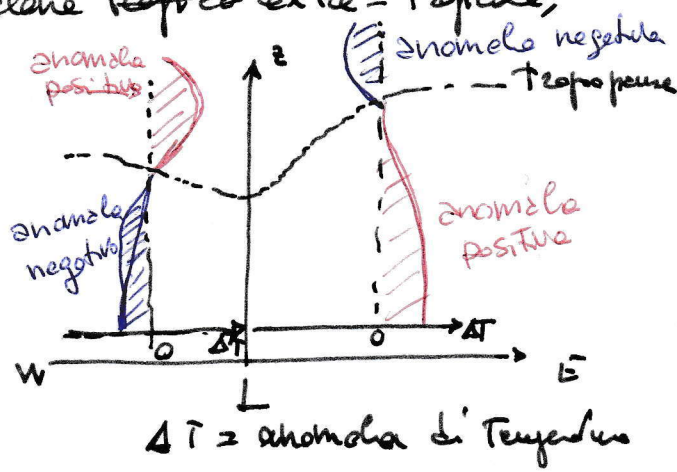 extra-Tropicale,
anomalia positiva
z
anomalia negativa
Tropopausa
anomalia negativa
anomalia positiva
0 ΔT
0 ΔT
W E
L
ΔT = anomalia di Temperatura